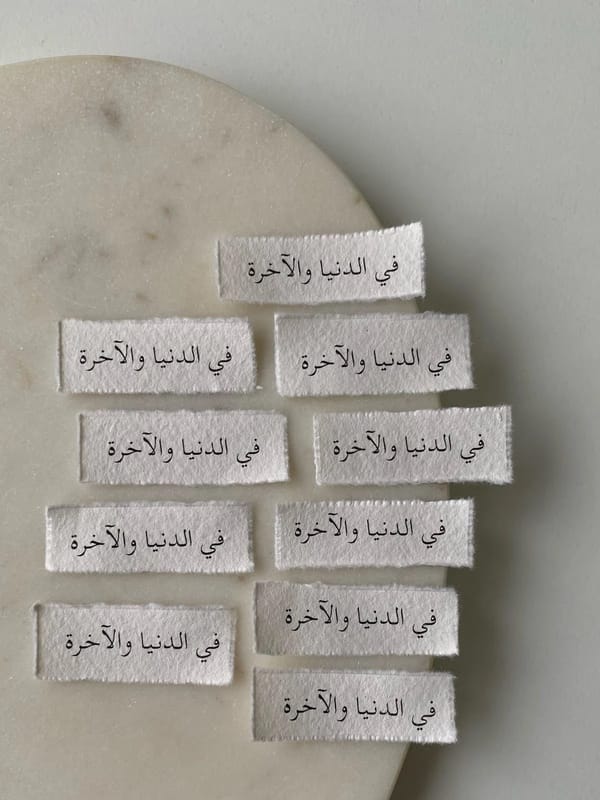 في الدنيا والآخرة
في الدنيا والآخرة
في الدنيا والآخرة
في الدنيا والآخرة
في الدنيا والآخرة
في الدنيا والآخرة
في الدنيا والآخرة
في الدنيا والآخرة
في الدنيا والآخرة
في الدنيا والآخرة